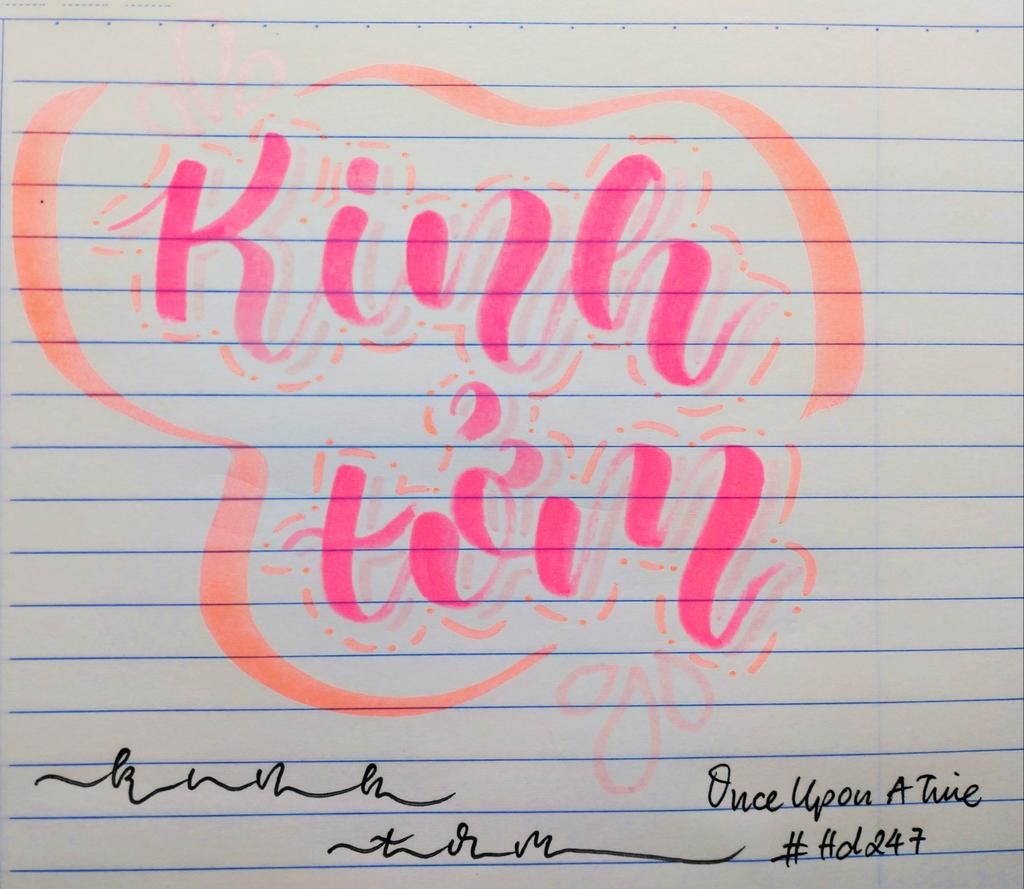 Kinh
tởm
kinh
tơm
Once Upon A Time
#Hd247